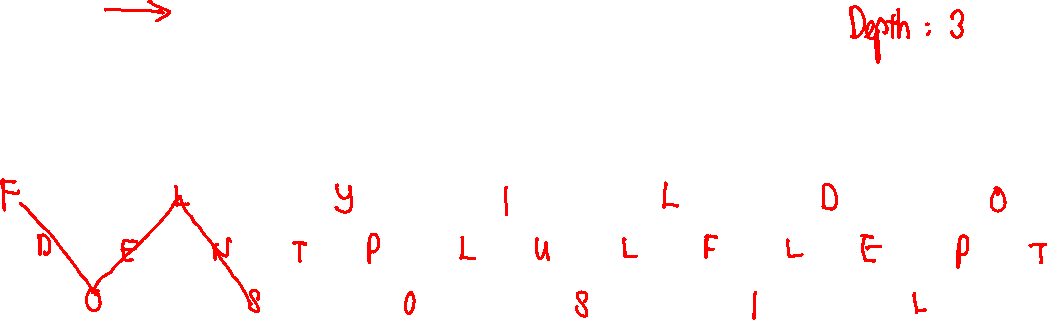 Depth : 3
F L Y I L D O
D E N T P L U L F L E P T
O S O S I L